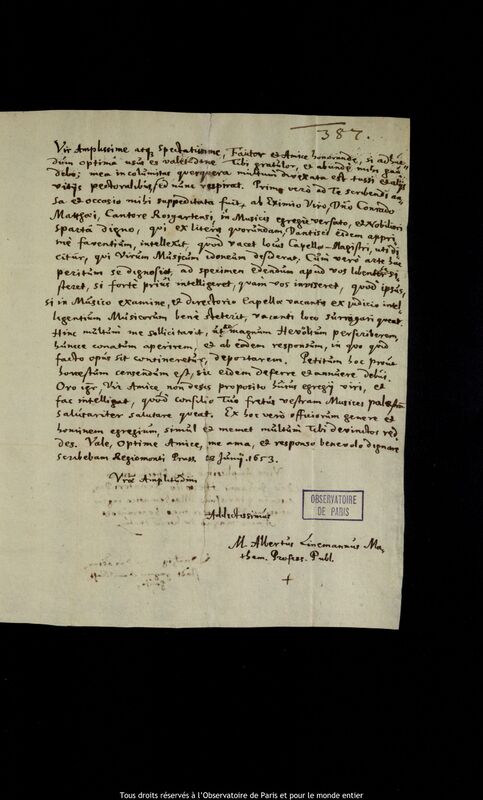 387.
Vir Amplissime atq Spectatissime, Fautor et Amice honorande, si adhuc
dum optimâ usus es valetudine Tibi gratulor, et abunde mihi gau
debo; mea incolumitas querquera multum divexata est tussi et aliis
vitijs pectoralibus, sed nunc respirat. Primò verò ad Te scribendi an
sa et occasio mihi suppeditata fuit, ab Eximio Viro, Dno Conrado
Matthæi, Cantore Roszgartensi, in Musicis egregiè versato, et Nobiliori
Spartâ digno, qui ex literis quorundam, Dantisci eidem appri
mè faventium, intellexit, quod vacet locus Capellæ-Magistri, uti di
citur, qui Virum Musicum idoneum desiderat. Cùm verò artis hac
peritum se dignoscat, ad specimen edendum apud vos libenter si
steret, si fortè priùs intelligeret, quàm vos inviseret, quod ipsus,
si in Musico examine, et directorio Capellæ vacantis ex judicio intel-
ligentium Musicorum benè steterit, vacanti loco surrogari queat.
Hinc multùm me sollicitavit, ut ad magnum Hevelium perscriberem,
huncce conatum aperirem, et ab eodem responsum, in quo quid
facto opus sit contineretur, deportarem. Petitum hoc prout
honestum censendum est, sic eidem deferre et annuere debui.
Oro igr, Vir Amice non desis proposito hujus egregij viri, et
fac intelligat, quod consilio Tuo fretus vestram Musices palæstram
salutariter salutare queat. Ex hoc verò officiorum genere et
hominem egregium, simul et memet multùm tibi devinctos red
des. Vale, Optime Amice, me ama, et responso benevolo dignare
Scribebam Regiomonti Pruss. Junij. 1653.
Vræ Amplitudini
Addictissimus
M. Albertus Linemannus Ma,
them. Profess. Publ.
OBSERVATOIRE
DE PARIS
Tous droits réservés à l'Observatoire de Paris et pour le monde entier